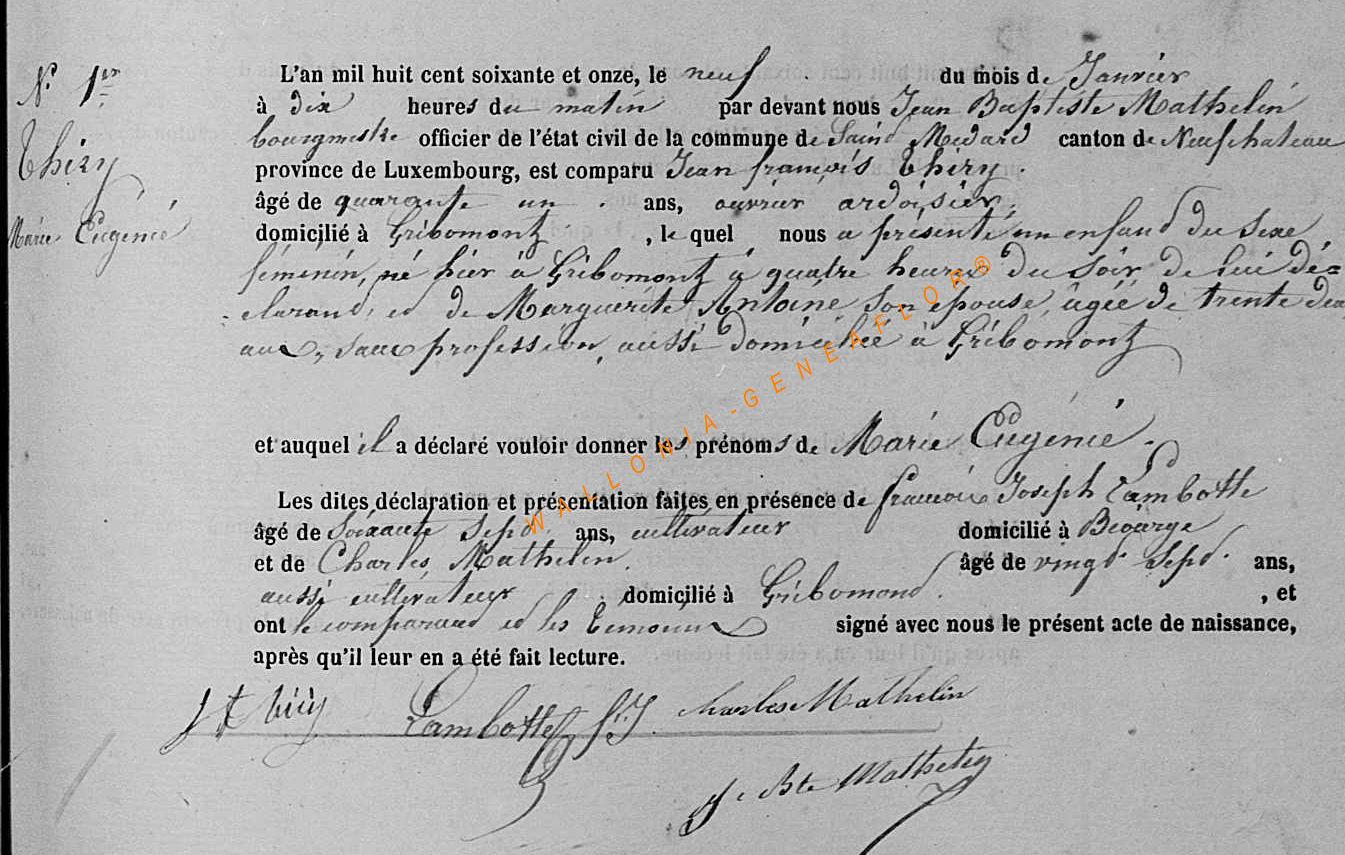 N° 1er
Thiry
Marie Eugénie
L'an mil huit cent soixante et onze, le neuf du mois de Janvier
à dix heures du matin par devant nous Jean Baptiste Mathelin
bourgmestre officier de l'état civil de la commune de Saint Médard canton de Neufchateau
province de Luxembourg, est comparu Jean françois Thiry.
âgé de quarante un ans, ouvrier ardoisier,
domicilié à Gribomont, le quel nous a présenté un enfant du sexe
féminin, né hier à Gribomont à quatre heures du soir de lui dé=
clarant, et de Marguerite Antoine son épouse, âgée de trente deux
ans, sans profession, aussi domiciliée à Gribomont
et auquel il a déclaré vouloir donner les prénoms de Marie Eugénie.
Les dites déclaration et présentation faites en présence de françois Joseph Lambotte
âgé de Soixante Sept ans, cultivateur domicilié à Biourge
et de Charles Mathelin. âgé de vingt Sept ans,
aussi cultivateur domicilié à Gribomont. , et
ont le comparant et les témoins signé avec nous le présent acte de naissance,
après qu'il leur en a été fait lecture.
J F Thiry Lambotte f. J. charles Mathelin
J Bte Mathelin
WALLONIA-GENEAFLOR®